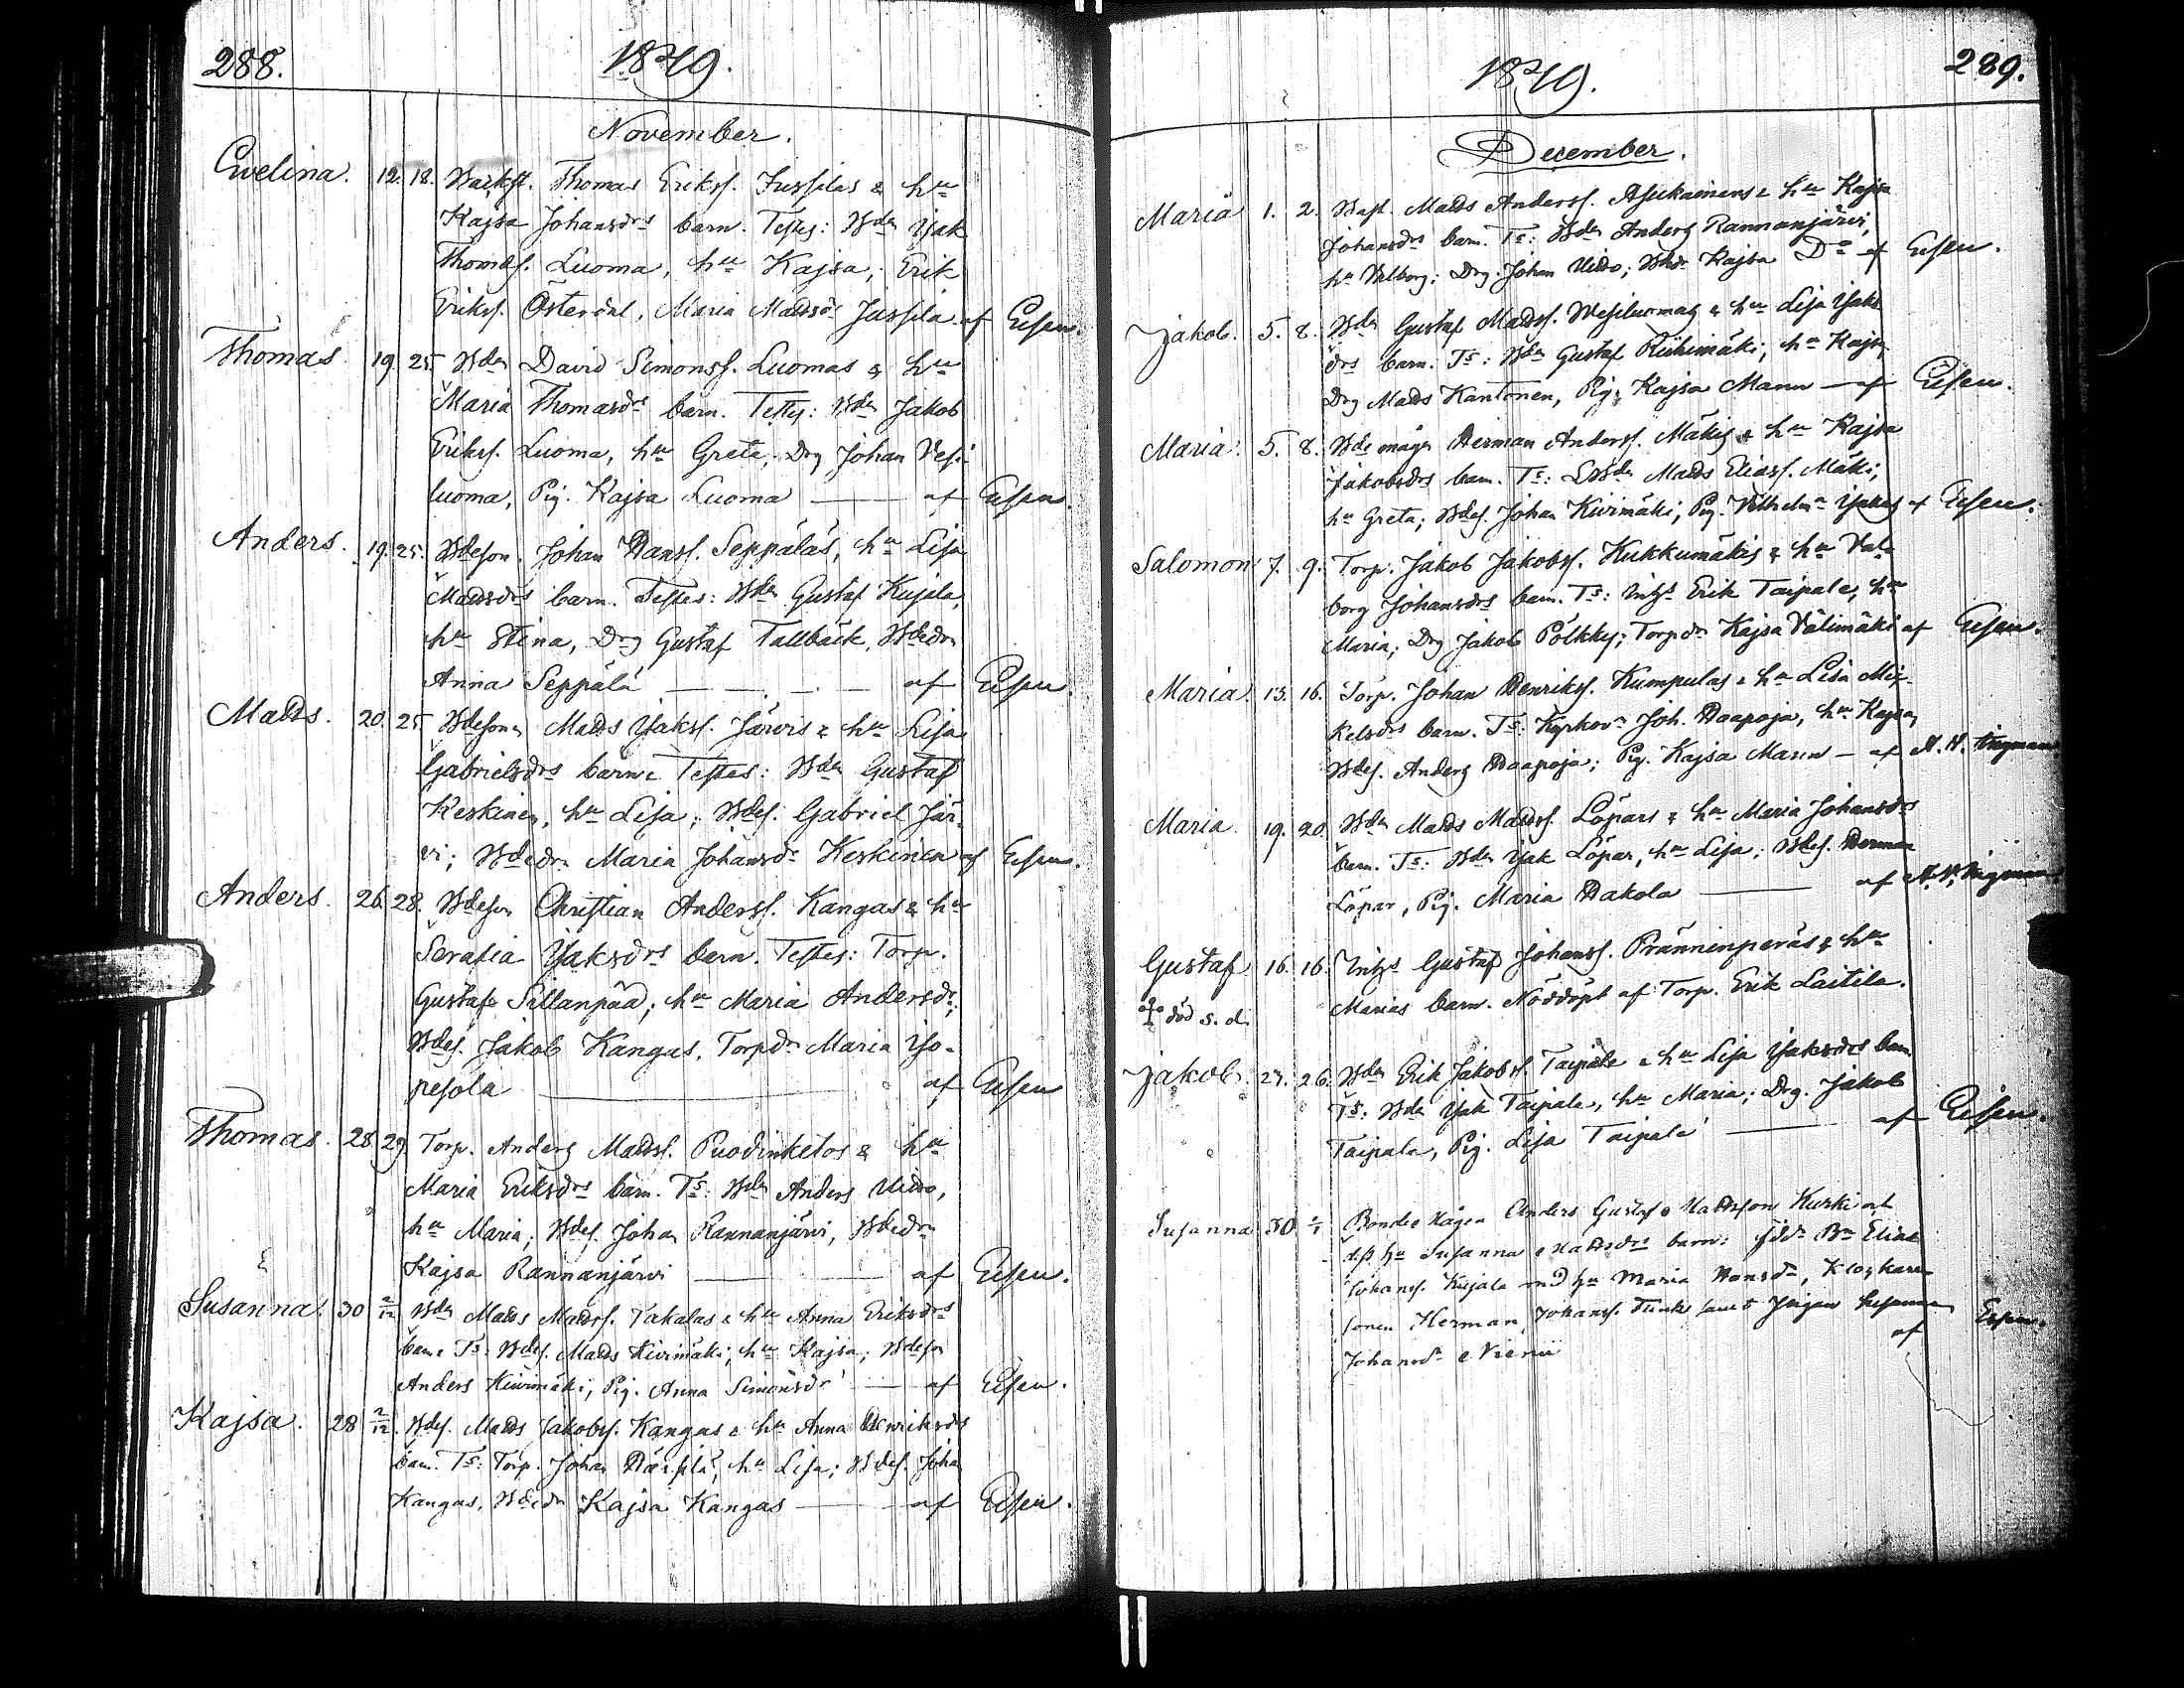 288.
1849.
November.
Evelina. 12. 18. Backst. Thomas Erikss. Jussilas & hu
Kajsa Johansdrs barn. Testes: Bdn Isak
Thomass. Luoma, hu Kajsa; Erik
Erikss. Österdal, Maria Mattsdr Jussila af Eisen.
Thomas 19. 25. Bdn David Simonss. Luomas & hu
Maria Thomasdrs barn. Testes: Bdn Jakob
Erikss. Luoma, hu Greta; Drg Johan Vesi-
luoma, Pig. Kajsa Luoma — af Eisen.
Anders. 19. 25. Bdeson Johan Hanss. Seppäläs, hu Lisa
Mattsdrs barn. Testes: Bdn Gustaf Kujala,
hu Stina, Drg Gustaf Tallbäck, Bdedr
Anna Seppälä — — — — af Eisen.
Matts. 20. 25. Bdeson Matts Isakss. Järvis & hu Lisa
Gabrielsdrs barn. Testes: Bdn Gustaf
Keskinen, hu Lisa; Bdes. Gabriel Jär-
vi; Bdedr Maria Johansdr Keskinen af Eisen.
Anders. 26. 28. Bdeson Christian Anderss. Kangas & hu
Serafia Isaksdrs barn. Testes: Torp.
Gustaf Sillanpää; hu Maria Andersdr;
Bdes. Jakob Kangas, Torpdr Maria Iso-
pesola — af Eisen
Thomas. 28 29. Torp. Anders Mattss. Puodinketos & hu
Maria Eriksdrs barn. Ts: Bdn Anders Uitto,
hu Maria; Bdes. Johan Rannanjärvi, Bdedr
Kajsa Rannanjärvi — af Eisen.
Susanna. 30 2/12 Bdn Matts Mattss. Takalas & hu Anna Eriksdrs
barn. Ts. Bdes. Matts Kivimäki, hu Kajsa; Bdeson
Anders Kivimäki, Pig. Anna Simonsdr — af Eisen.
Kajsa. 28 2/12. Bdes. Matts Jakobss. Kangas & hu Anna Henriksdrs
barn. Ts: Torp. Johan hu Lisa; Bdes. Johan
Kangas, Bdedr Kajsa Kangas — af Eisen.
289.
1849.
December.
Maria 1. 2. Matts Anderss. Asukainens & hu Kajsa
Johansdrs barn. Ts: Bdn Anders Rannanjärvi,
hu Valborg; Drg. Johan Uitto; Bdedr Kajsa Do af Eisen.
Jakob. 5. 8. Bdn Gustaf Mattss. Vesiluomas & hu Lisa Isaks
drs barn. Ts: Bdn Gustaf Riihimäki, hu Kajsa,
Drg Matts Kantonen, Pig. Kajsa Mann — af Eisen.
Maria. 5. 8. Bdemågen Herman Anderss. Mäkis & hu Kajsa
Jakobsdrs barn. Ts: Matts Eliass. Mäki,
hu Greta; Bdes. Johan Kivimäki, Pig. Vilhelma af Eisen.
Salomon 7. 9. Torp. Jakob Jakobss. Kukkumäkis & hu Val-
borg Johansdrs barn. Ts: Inhs Erik Taipale, hu
Maria; Drg Jakob Pölkky; Torpdr Kajsa Välimäki af Eisen.
Maria. 13. 16. Torp. Johan Henrikss. Kumpulas & hu Lisa Mic-
kelsdrs barn. Ts: Kyrkov. Joh. Haapoja, hu Kajsa;
Bdes. Anders Haapoja; Pig. Kajsa Mann — af
Maria. 19. 20. Bdn Matts Mattss. Löpars & hu Maria Johansdrs
barn. Ts: Bdn Isak Löpar, hu Lisa; Bdes. Herman
Löpar, Pig. Maria Hakola — af
Gustaf 16. 16. Inhs Gustaf Johanss. Pränninperäs & hu
Marias barn. Nöddöpt af Torp. Erik Laitila.
död s. d.
Jakob. 25. 26. Bdn Erik Jakobss. Taipale & hu Lisa Isaksdrs barn
Ts: Bdn Isak Taipale, hu Maria; Drg. Jakob
Taipale, Pig. Lisa Taipale — af Eisen.
Susanna 30 Bonde Mågen Anders Gustaf Mattsson Kurki och
dess hu Susanna Mattsdrs barn: Bn Elias
Johanss. Kujala med hu Maria Hansdr, Klockare
sonen Herman Johanss. samt Pigan Susanna
Johansdr Niemi af Eisen.